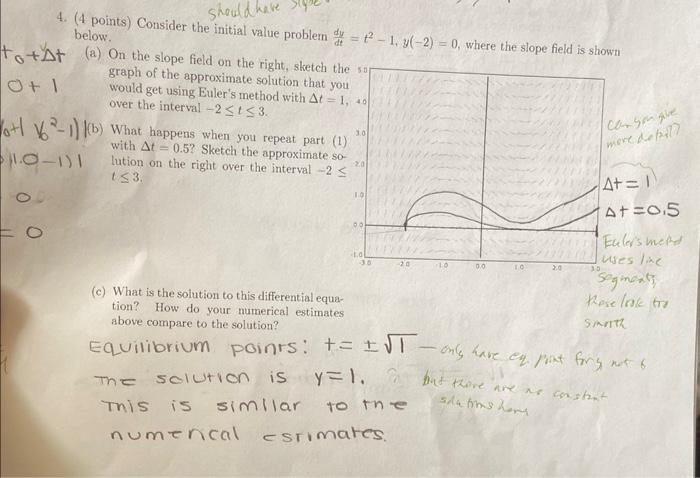 should have slope
4. (4 points) Consider the initial value problem dy/dt = t² − 1, y(−2) = 0, where the slope field is shown
below.
t₀+Δt
0+1
(a) On the slope field on the right, sketch the
graph of the approximate solution that you
would get using Euler's method with Δt = 1,
over the interval −2 ≤ t ≤ 3.
(b) What happens when you repeat part (1)
with Δt = 0.5? Sketch the approximate so-
lution on the right over the interval −2 ≤
t ≤ 3.
0
= 0
5.0
4.0
3.0
2.0
1.0
0.0
-1.0
-3.0 -2.0 -1.0 0.0 1.0 2.0 3.0
can you give
more detail?
Δt=1
Δt=0.5
Euler's method
uses line
segments
these look too
smooth
(c) What is the solution to this differential equa-
tion? How do your numerical estimates
above compare to the solution?
Equilibrium points: t= ±√1 — only have eq point for y not t
The solution is y=1. ? but there are no constant
solutions here
This is similar to the
numerical estimates.